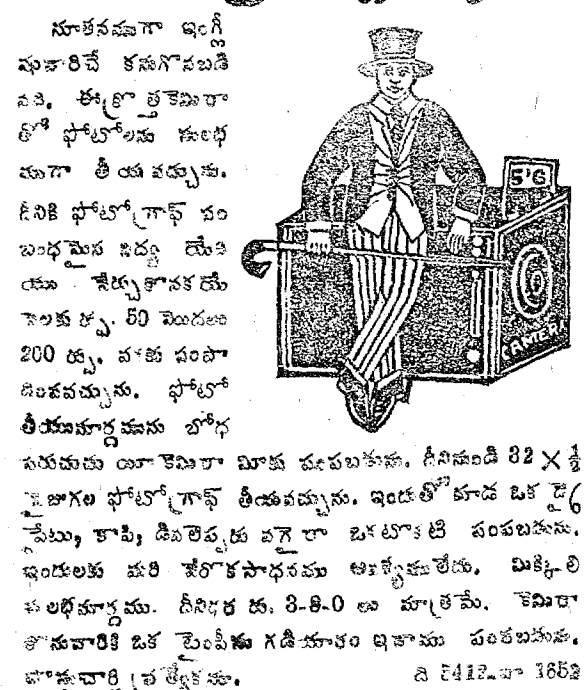 నూతనముగా ఇంగ్లీ
షువారిచే కనుగొనబడి
నది. ఈ క్రొత్త కెమిరా
తో ఫోటోలను సులభ
ముగా తీయ వచ్చును.
దీనికి ఫోటోగ్రాఫ్ సం
బంధమైన విద్య యేమి
యు నేర్చుకొనకయే
నెలకు రూ. 50 మొదలు
200 రు. వరకు సంపా
దించవచ్చును. ఫోటో
తీయుమార్గమును బోధ
పరుచుచు యీ కెమిరా మీకు పంపబడును. దీనినుండి 32 X
సైజుగల ఫోటోగ్రాఫ్ తీయవచ్చును. ఇందుతో కూడ ఒక డ్రై
ప్లేటు, కాపి, డివలెప్పరు వగైరా ఒకటొకటి పంపబడును.
ఇందులకు మరి వేరొకసాధనము అవశ్యములేదు. మిక్కిలి
సులభమార్గము. దీనిధర రు. 3-8-0 లు మాత్రమే. కెమిరా
కొనువారికి ఒక టైంపీసు గడియారం ఇనాము పంపబడును.
5'6
CAMERA